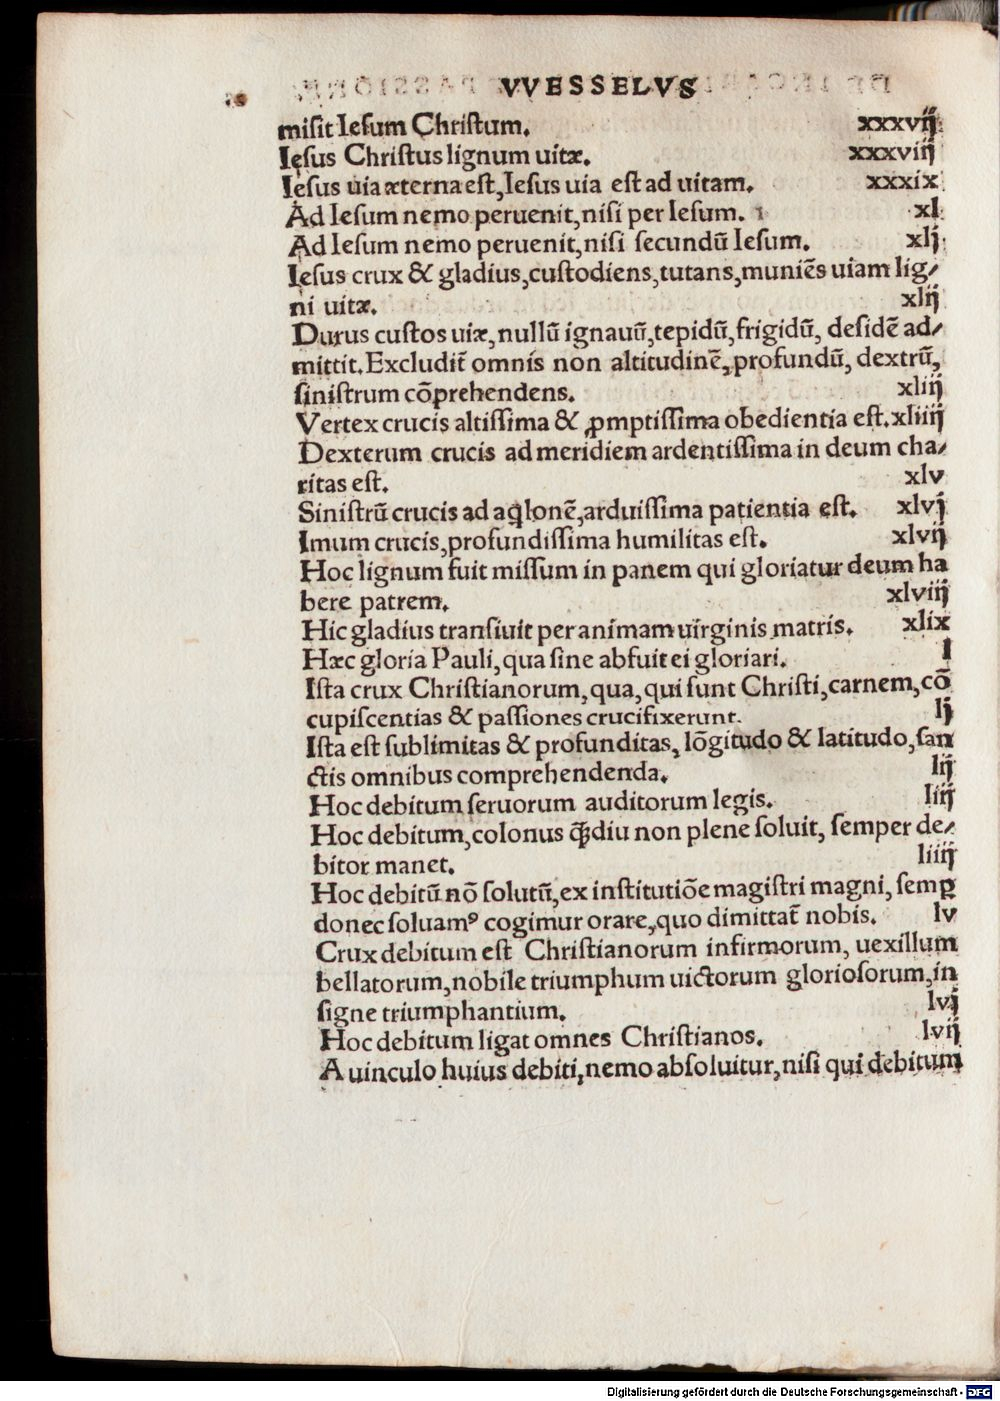 VVESSELVS
misit Iesum Christum. xxxvij
Ięsus Christus lignum uitæ. xxxviij
Iesus uia æterna est, Iesus uia est ad uitam. xxxix
Ad Iesum nemo peruenit, nisi per Iesum. xl
Ad Iesum nemo peruenit, nisi secundū Iesum. xlj
Iesus crux & gladius, custodiens, tutans, muniẽs uiam lig/
ni uitæ. xlij
Durus custos uiæ, nullū ignauū, tepidū, frigidū, desidẽ ad/
mittit. Excludit̃ omnis non altitudinẽ, profundū, dextrū,
sinistrum cõprehendens. xliij
Vertex crucis altissima & ꝓmptissima obedientia est. xliiij
Dexterum crucis ad meridiem ardentissima in deum cha/
ritas est. xlv
Sinistrū crucis ad aq̇lonẽ, arduissima patientia est. xlvj
Imum crucis, profundissima humilitas est. xlvij
Hoc lignum fuit missum in panem qui gloriatur deum ha
bere patrem. xlviij
Hic gladius transiuit per animam uirginis matris. xlix
Hæc gloria Pauli, qua sine absuit ei gloriari. l
Ista crux Christianorum, qua, qui sunt Christi, carnem, cõ
cupiscentias & passiones crucifixerunt. lj
Ista est sublimitas & profunditas, lõgitudo & latitudo, san
ctis omnibus comprehendenda. lij
Hoc debitum seruorum auditorum legis. liij
Hoc debitum, colonus q̃diu non plene soluit, semper de/
bitor manet. liiij
Hoc debitū nõ solutū, ex institutiõe magistri magni, semꝑ
donec soluamꝰ cogimur orare, quo dimittat̃ nobis. lv
Crux debitum est Christianorum infirmorum, uexillum
bellatorum, nobile triumphum uictorum gloriosorum, in
signe triumphantium. lvj
Hoc debitum ligat omnes Christianos. lvij
A uinculo huius debiti, nemo absoluitur, nisi qui debitum
Digitalisierung gefördert durch die Deutsche Forschungsgemeinschaft - DFG